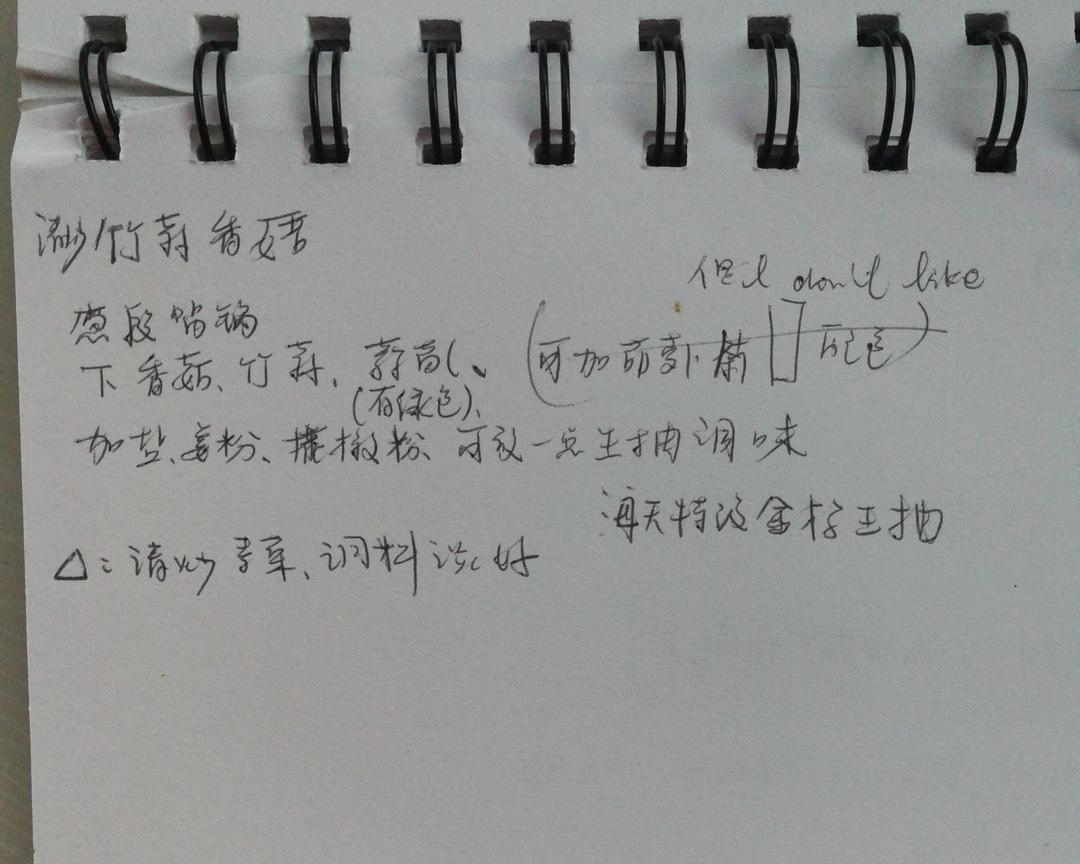 清炒竹荪香菇
但I don't like
葱段炝锅
下香菇、竹荪、蒜苗(、(可加胡萝卜 配色)
(有绿色)、
加盐、姜粉、撒粉、可放一点生抽调味
海天特级金标生抽
△:清炒、调料说好